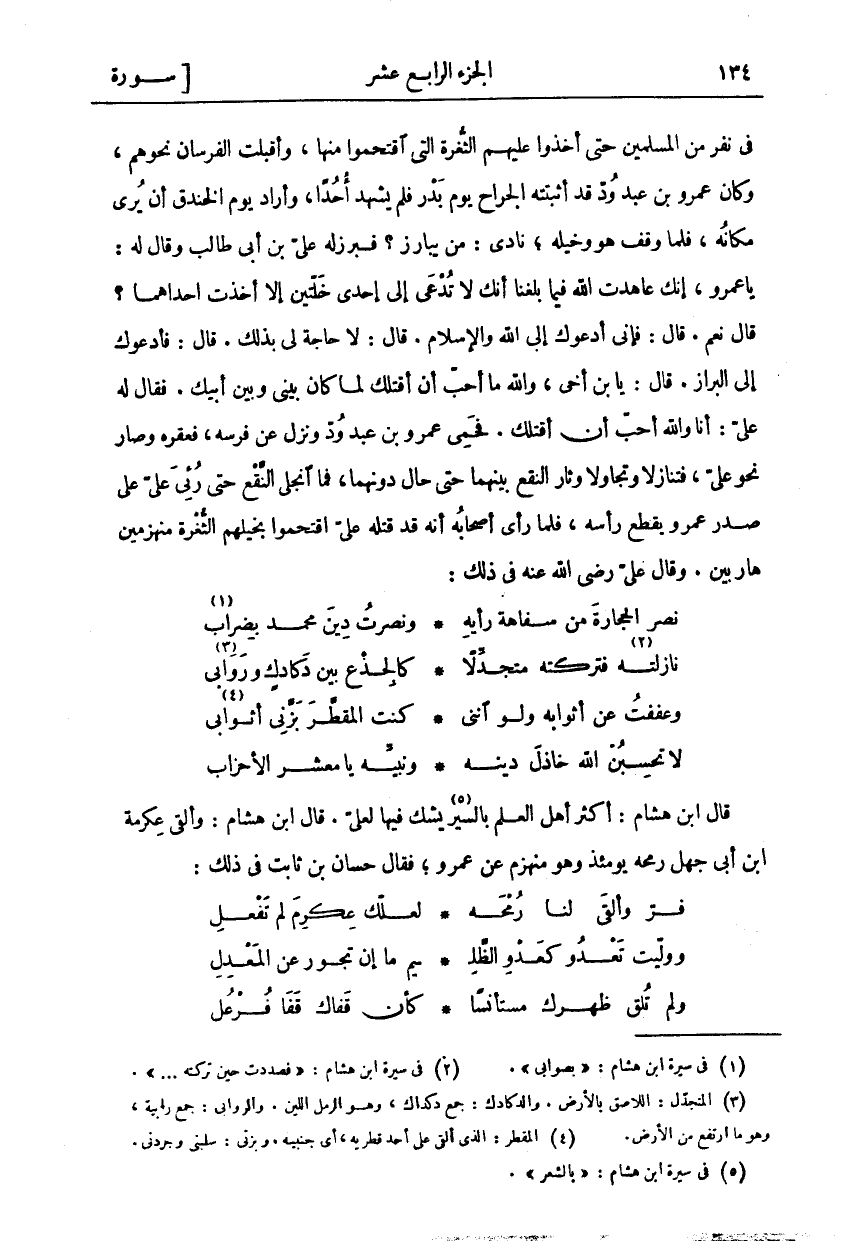 ١٣٤ الجزء الرابع عشر [ سورة
فى نفر من المسلمين حتى أخذوا عليهم الثُّغرة التى اقتحموا منها ، وأقبلت الفرسان نحوهم ،
وكان عمرو بن عبد وُدّ قد أثبتته الجراح يوم بَدْر فلم يشهد أُحُدًا، وأراد يوم الخندق أن يُرى
مكانُه ، فلما وقف هو وخيله ؛ نادى : من يبارز ؟ فبرز له علىّ بن أبى طالب وقال له :
ياعمرو ، إنك عاهدت الله فيما بلغنا أنك لا تُدْعَى إلى إحدى خَلّتين إلا أخذت احداهما ؟
قال نعم . قال : فإنى أدعوك إلى الله والإسلام . قال : لا حاجة لى بذلك . قال : فأدعوك
إلى البراز . قال : يا بن أخى ، والله ما أحبّ أن أقتلك لما كان بينى وبين أبيك . فقال له
علىّ : أنا والله أحبّ أن أقتلك . فحَمِى عمرو بن عبد وُدّ ونزل عن فرسه، فعقره وصار
نحو علىّ ، فتنازلا وتجاولا وثار النقع بينهما حتى حال دونهما، فما انجلى النَّقْع حتى رُئِىَ علىّ على
صدر عمرو يقطع رأسه ، فلما رأى أصحابُه أنه قد قتله علىّ اقتحموا بخيلهم الثُّغرة منهزمين
هاربين . وقال علىّ رضى الله عنه فى ذلك :
نصر الحجارةَ من سفاهة رأيِهِ * ونصرتُ دِينَ محمد بِضراب (١)
نازلتـه (٢) فتركته متجدِّلًا * كالجِذْع بين دَكادكٍ ورَوَابى (٣)
وعففتُ عن أثوابه ولو آننى * كنت المقطَّرَ بَزَّنِى أثوابى (٤)
لا تحسِبُنّ الله خاذلَ دينه * ونبيِّه يا معشر الأحزاب
قال ابن هشام : أكثر أهل العلم بالسِّيَر (٥) يشك فيها لعلىّ . قال ابن هشام : وألقى عِكرمة
ابن أبى جهل رمحه يومئذ وهو منهزم عن عمرو ؛ فقال حسان بن ثابت فى ذلك :
فرّ وألقى لنا رُمْحَه * لعلّك عِكرِمَ لم تَفْعلِ
وولّيت تَعْدُو كعَدْوِ الظَّلِـ * ـيم ما إن تجور عن المَعْدِلِ
ولم تُلق ظهرك مستأنسًا * كأن قفاك قَفَا فُرْعُل
(١) فى سيرة ابن هشام : « بصوابى » . (٢) فى سيرة ابن هشام : « فصددت حين تركته ... » .
(٣) المتجدّل : اللاصق بالأرض . والدكادك : جمع دكداك ، وهو الرمل اللين . والروابى : جمع رابية ،
وهو ما ارتفع من الأرض. (٤) المقطر : الذى ألقى على أحد قطريه ، أى جنبيه . وبزنى : سلبنى وجردنى .
(٥) فى سيرة ابن هشام : « بالشعر » .